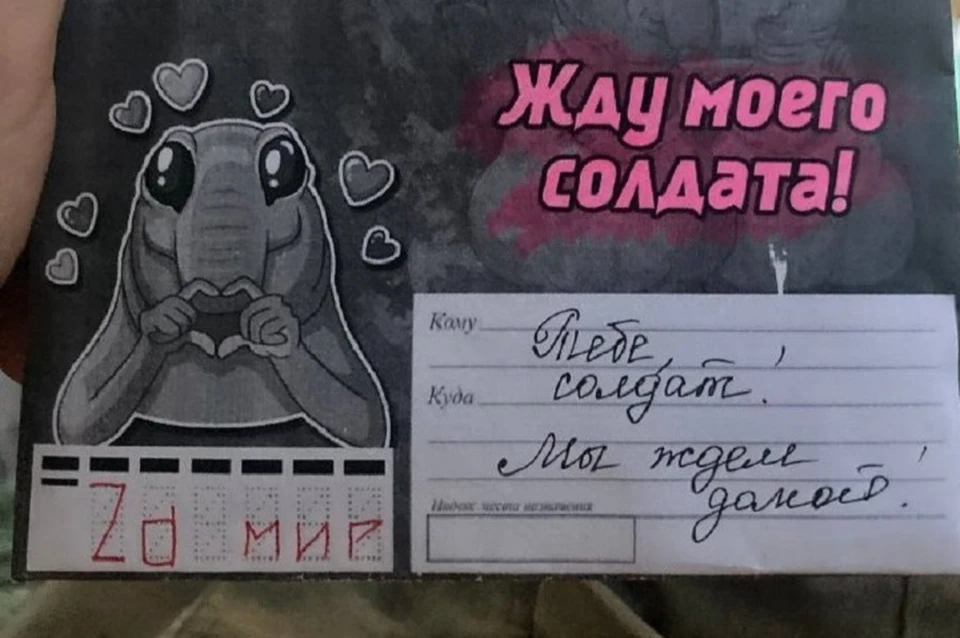 Жду моего
солдата!
Кому
Тебе,
Куда
солдат!
Мы ждем
домой!
Индекс места назначения
Zа мир